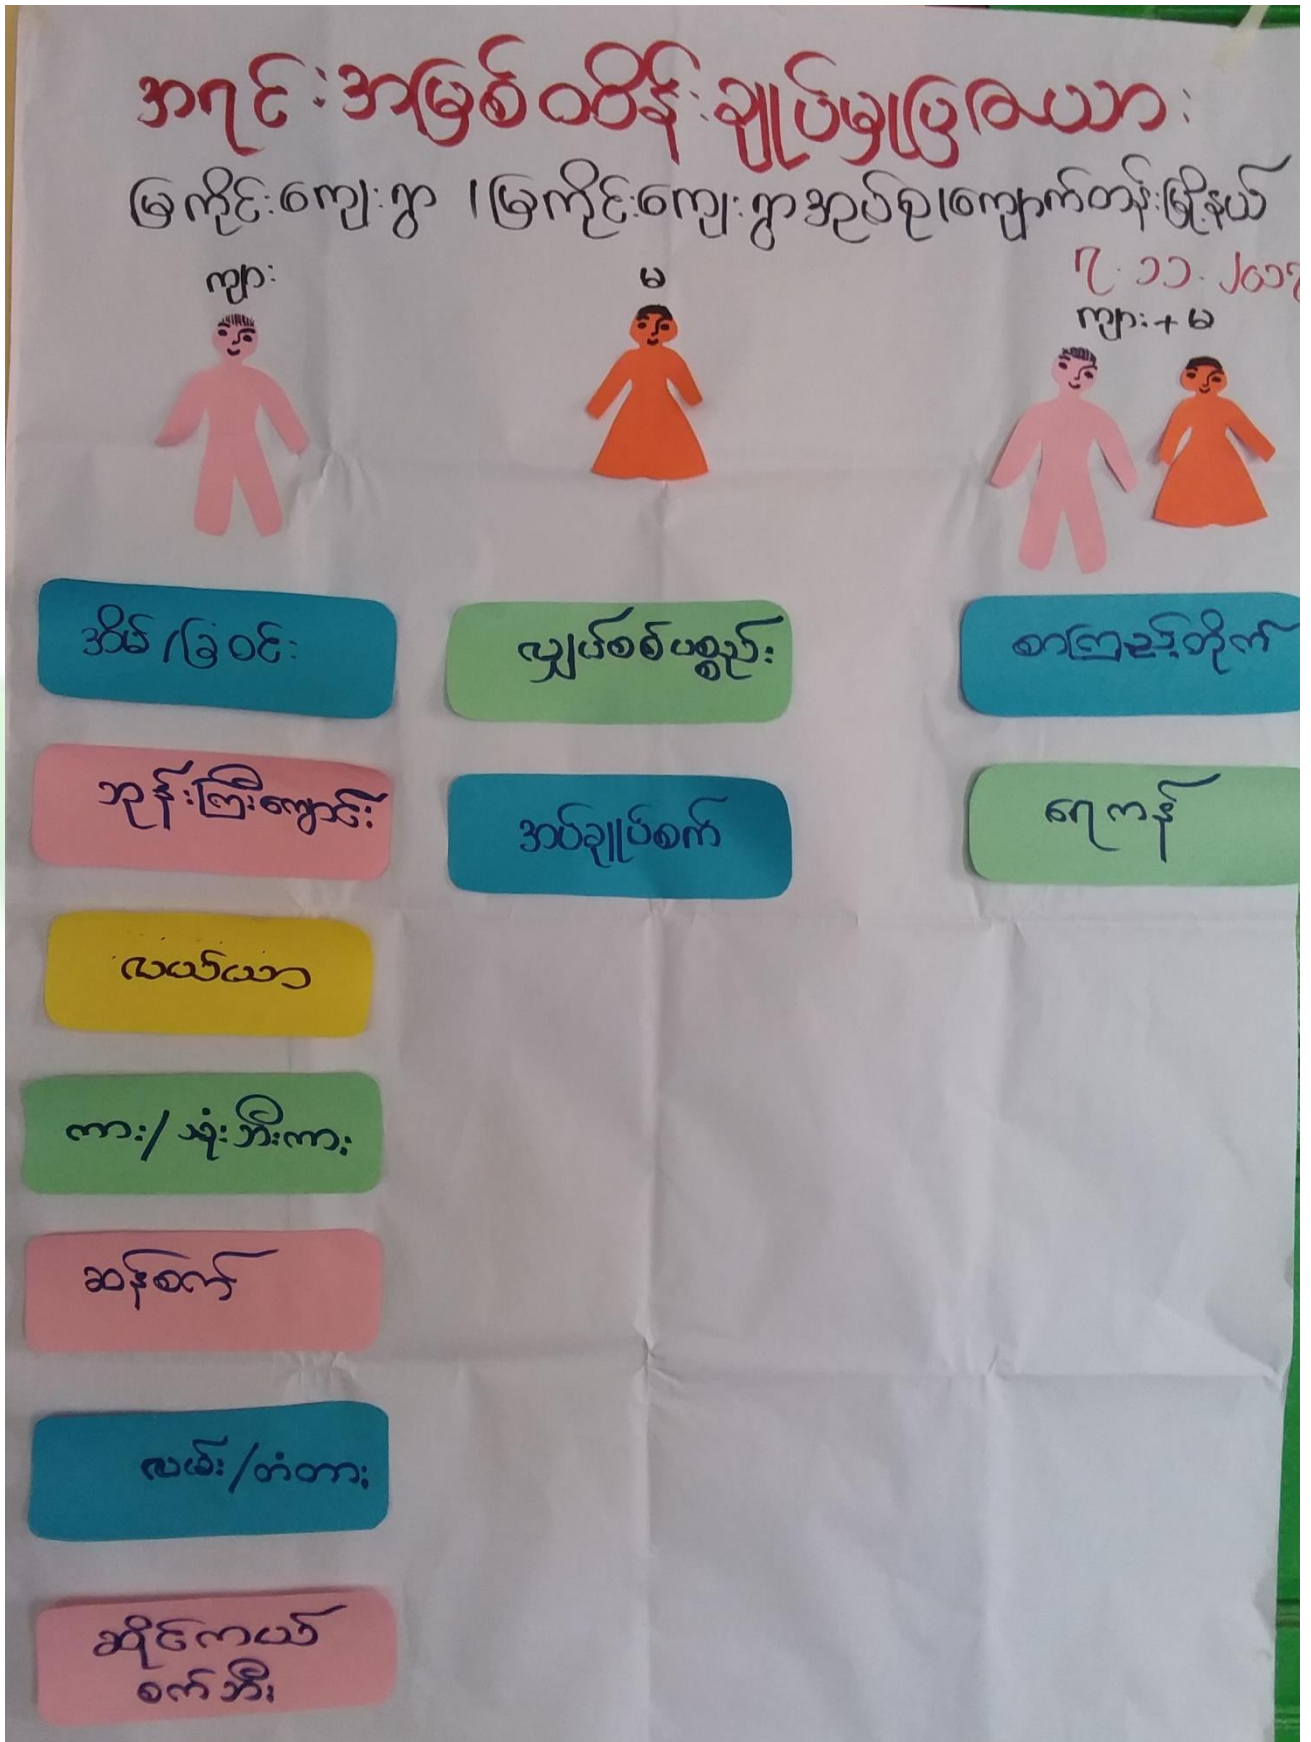 အရင်းအမြစ်ထိန်းချုပ်မှုပြဇယား
မြကိုင်းကျေးရွာ ၊ မြကိုင်းကျေးရွာအုပ်စု၊ကျောက်တန်းမြို့နယ်
၇.၁၁.၂၀၁၇
ကျား
မ
ကျား+မ
အိမ်/ခြံဝင်း
ဘုန်းကြီးကျောင်း
လယ်ယာ
ကား/သုံးဘီးကား
ဆန်စက်
လမ်း/တံတား
ဆိုင်ကယ်
စက်ဘီး
လျှပ်စစ်ပစ္စည်း
အပ်ချုပ်စက်
စာကြည့်တိုက်
ရေကန်